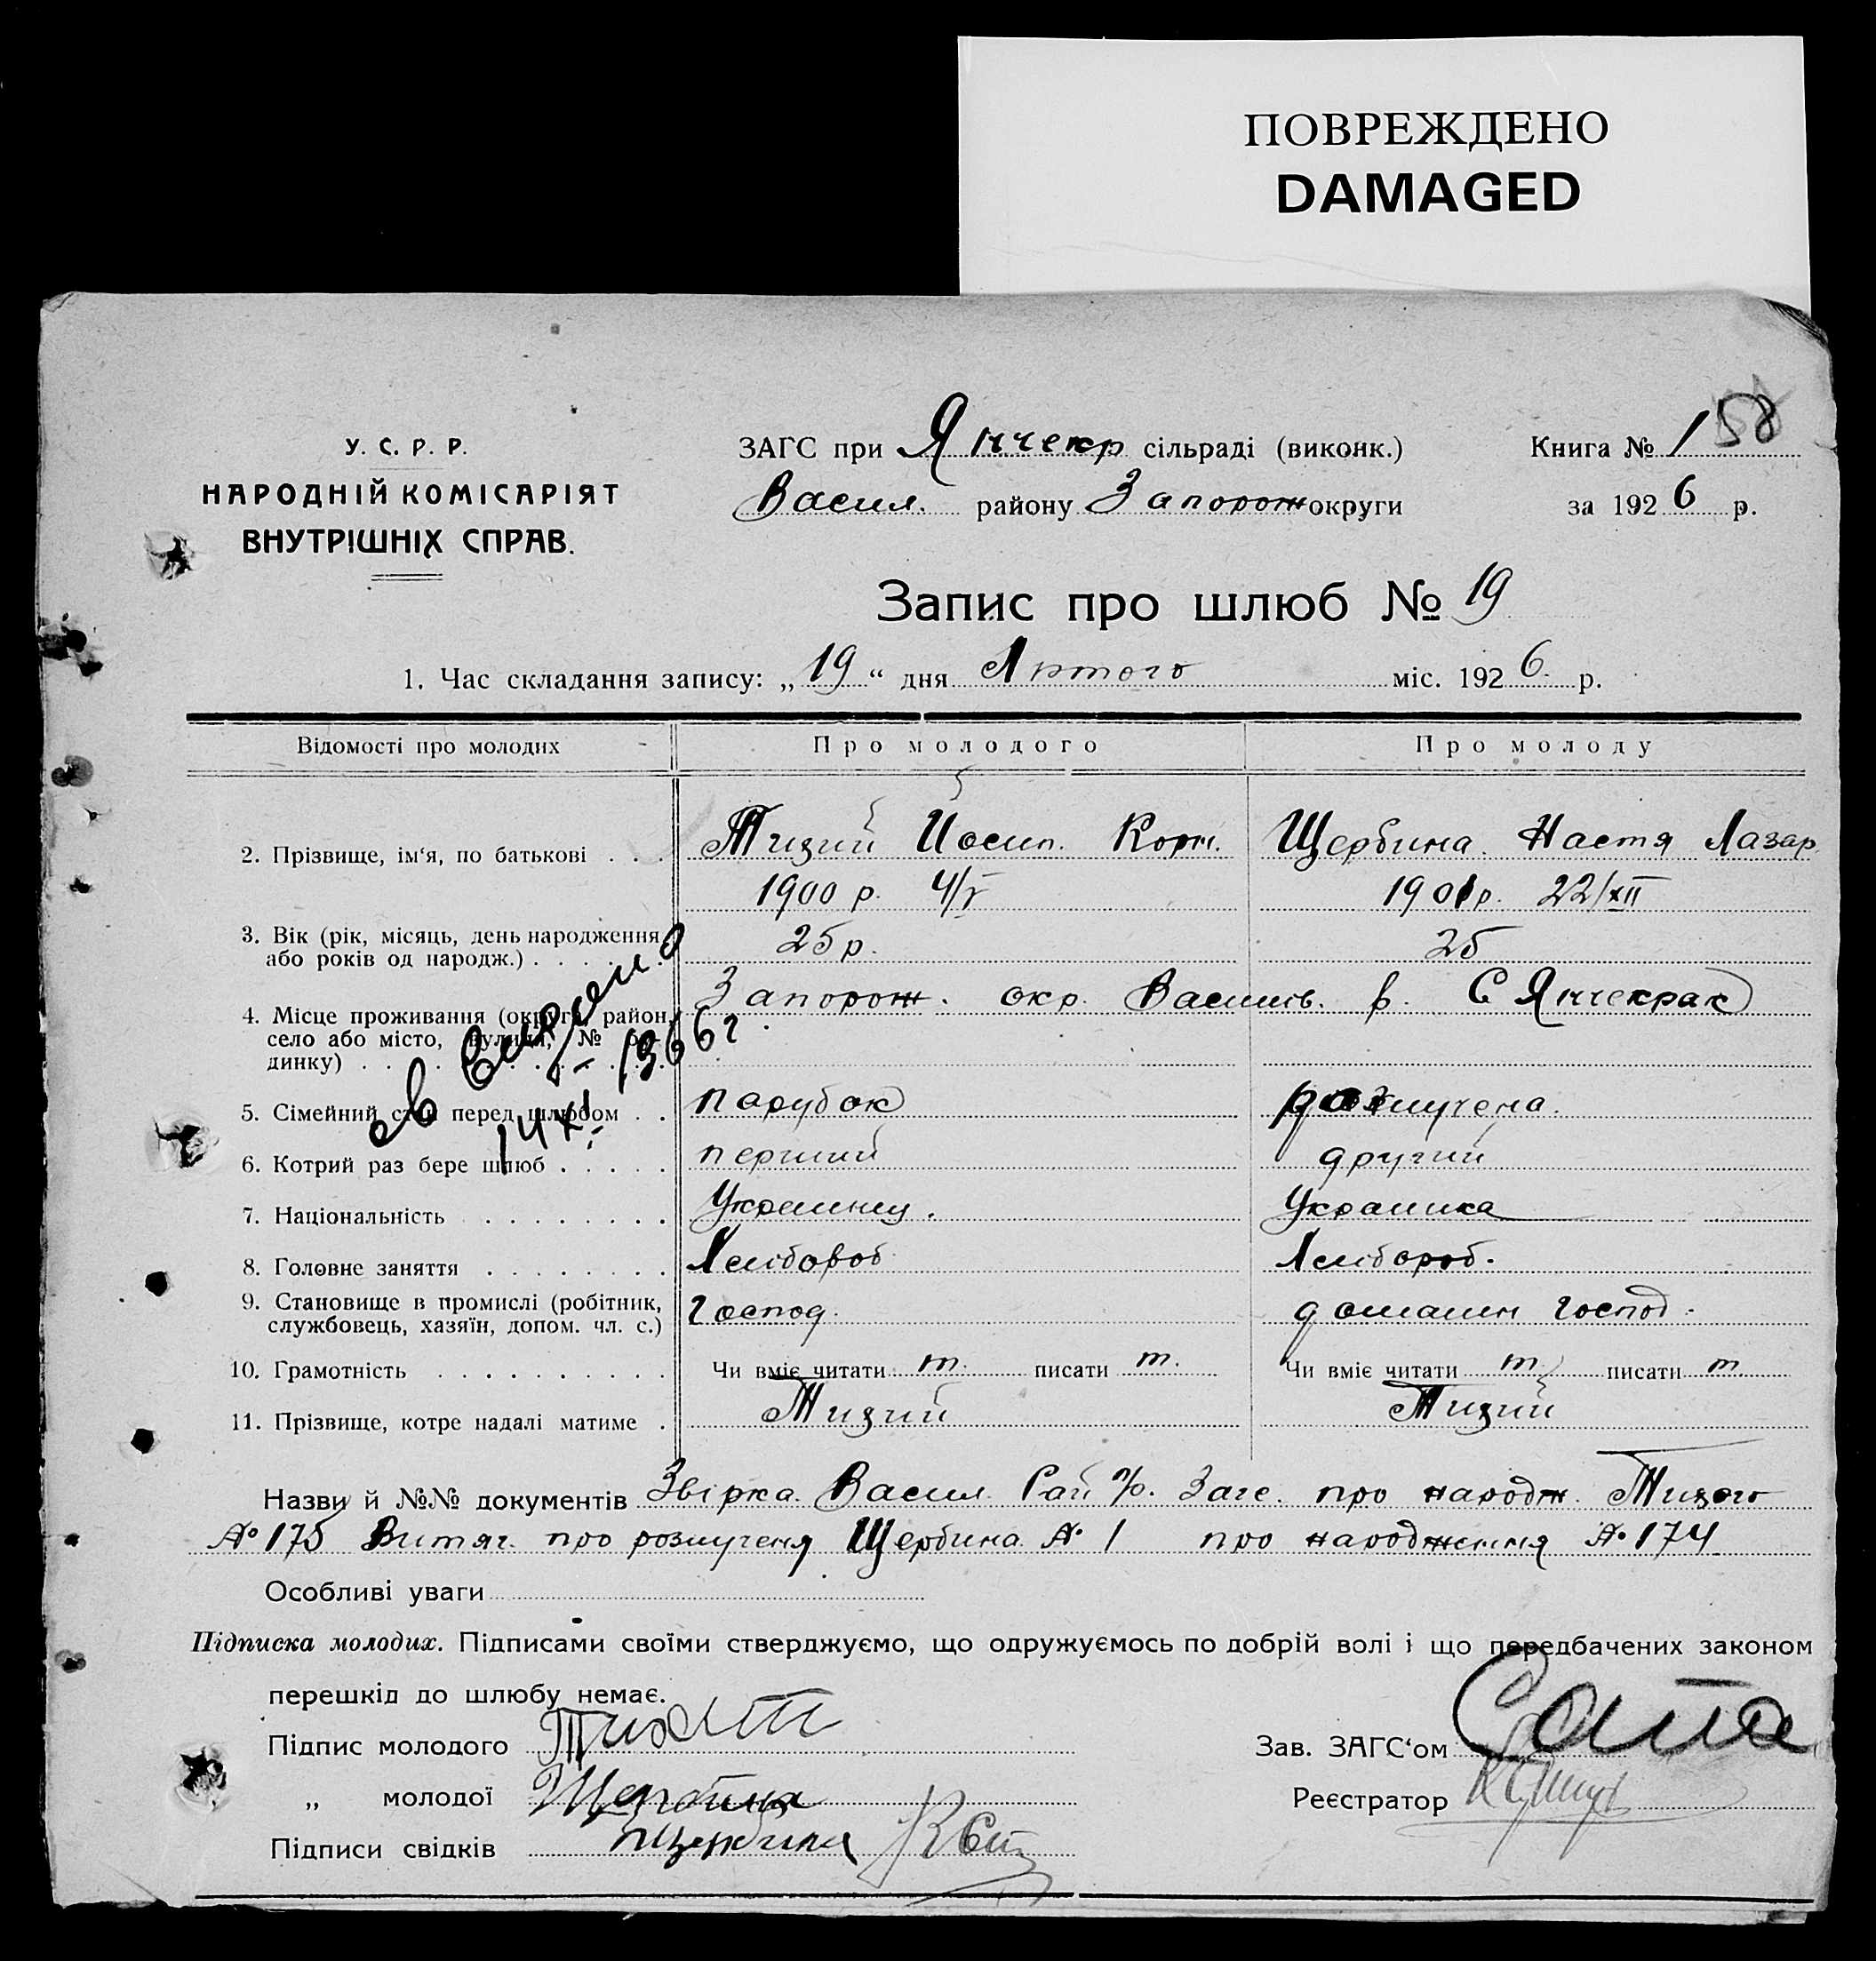 ПОВРЕЖДЕНО
DAMAGED
У. С. Р. Р.
НАРОДНІЙ КОМІСАРІЯТ
ВНУТРІШНІХ СПРАВ.
ЗАГС при Янчекр сільраді (виконк.)
Васил. району Запорож округи
Книга № 1 58
за 1926 р.
Запис про шлюб № 19
1. Час складання запису: „19“ дня Лютого міс. 1926 р.
Відомості про молодих Про молодого Про молоду
2. Прізвище, ім‘я, по батькові . . . Тизий Йосип. Корн. Щербина. Настя Лазар
1900 р. 4/V 1901 р. 22/XII
3. Вік (рік, місяць, день народження або років од народж.) . . . . . . 25 р. 25
4. Місце проживання (округа, район, село або місто, вулиця, № будинку) . . . Запорож. окр. Василів. р. С Янчекрак
14 XI 1966 г.
5. Сімейний стан перед шлюбом . . парубок розлучена.
6. Котрий раз бере шлюб . . . . . перший другий
7. Національність . . . . . . . . Украинец. Украинка
8. Головне заняття . . . . . . . . Хлібороб Хлібороб.
9. Становище в промислі (робітник, службовець, хазяїн, допом. чл. с.) господ. домашн господ.
10. Грамотність . . . . . . . . . . Чи вміє читати т. писати т. Чи вміє читати т. писати т.
11. Прізвище, котре надалі матиме . Тизий Тизий
Назви й №№ документів Звірка. Васил. Рай Загс. про народж. Тизого
№ 175 Витяг. про розлученя Щербина. № 1 про народження № 174
Особливі уваги
Підписка молодих. Підписами своїми стверджуємо, що одружуємось по добрій волі і що передбачених законом
перешкід до шлюбу немає.
Підпис молодого
„ молодої Щербина
Підписи свідків Щербина
Зав. ЗАГС‘ом
Реєстратор